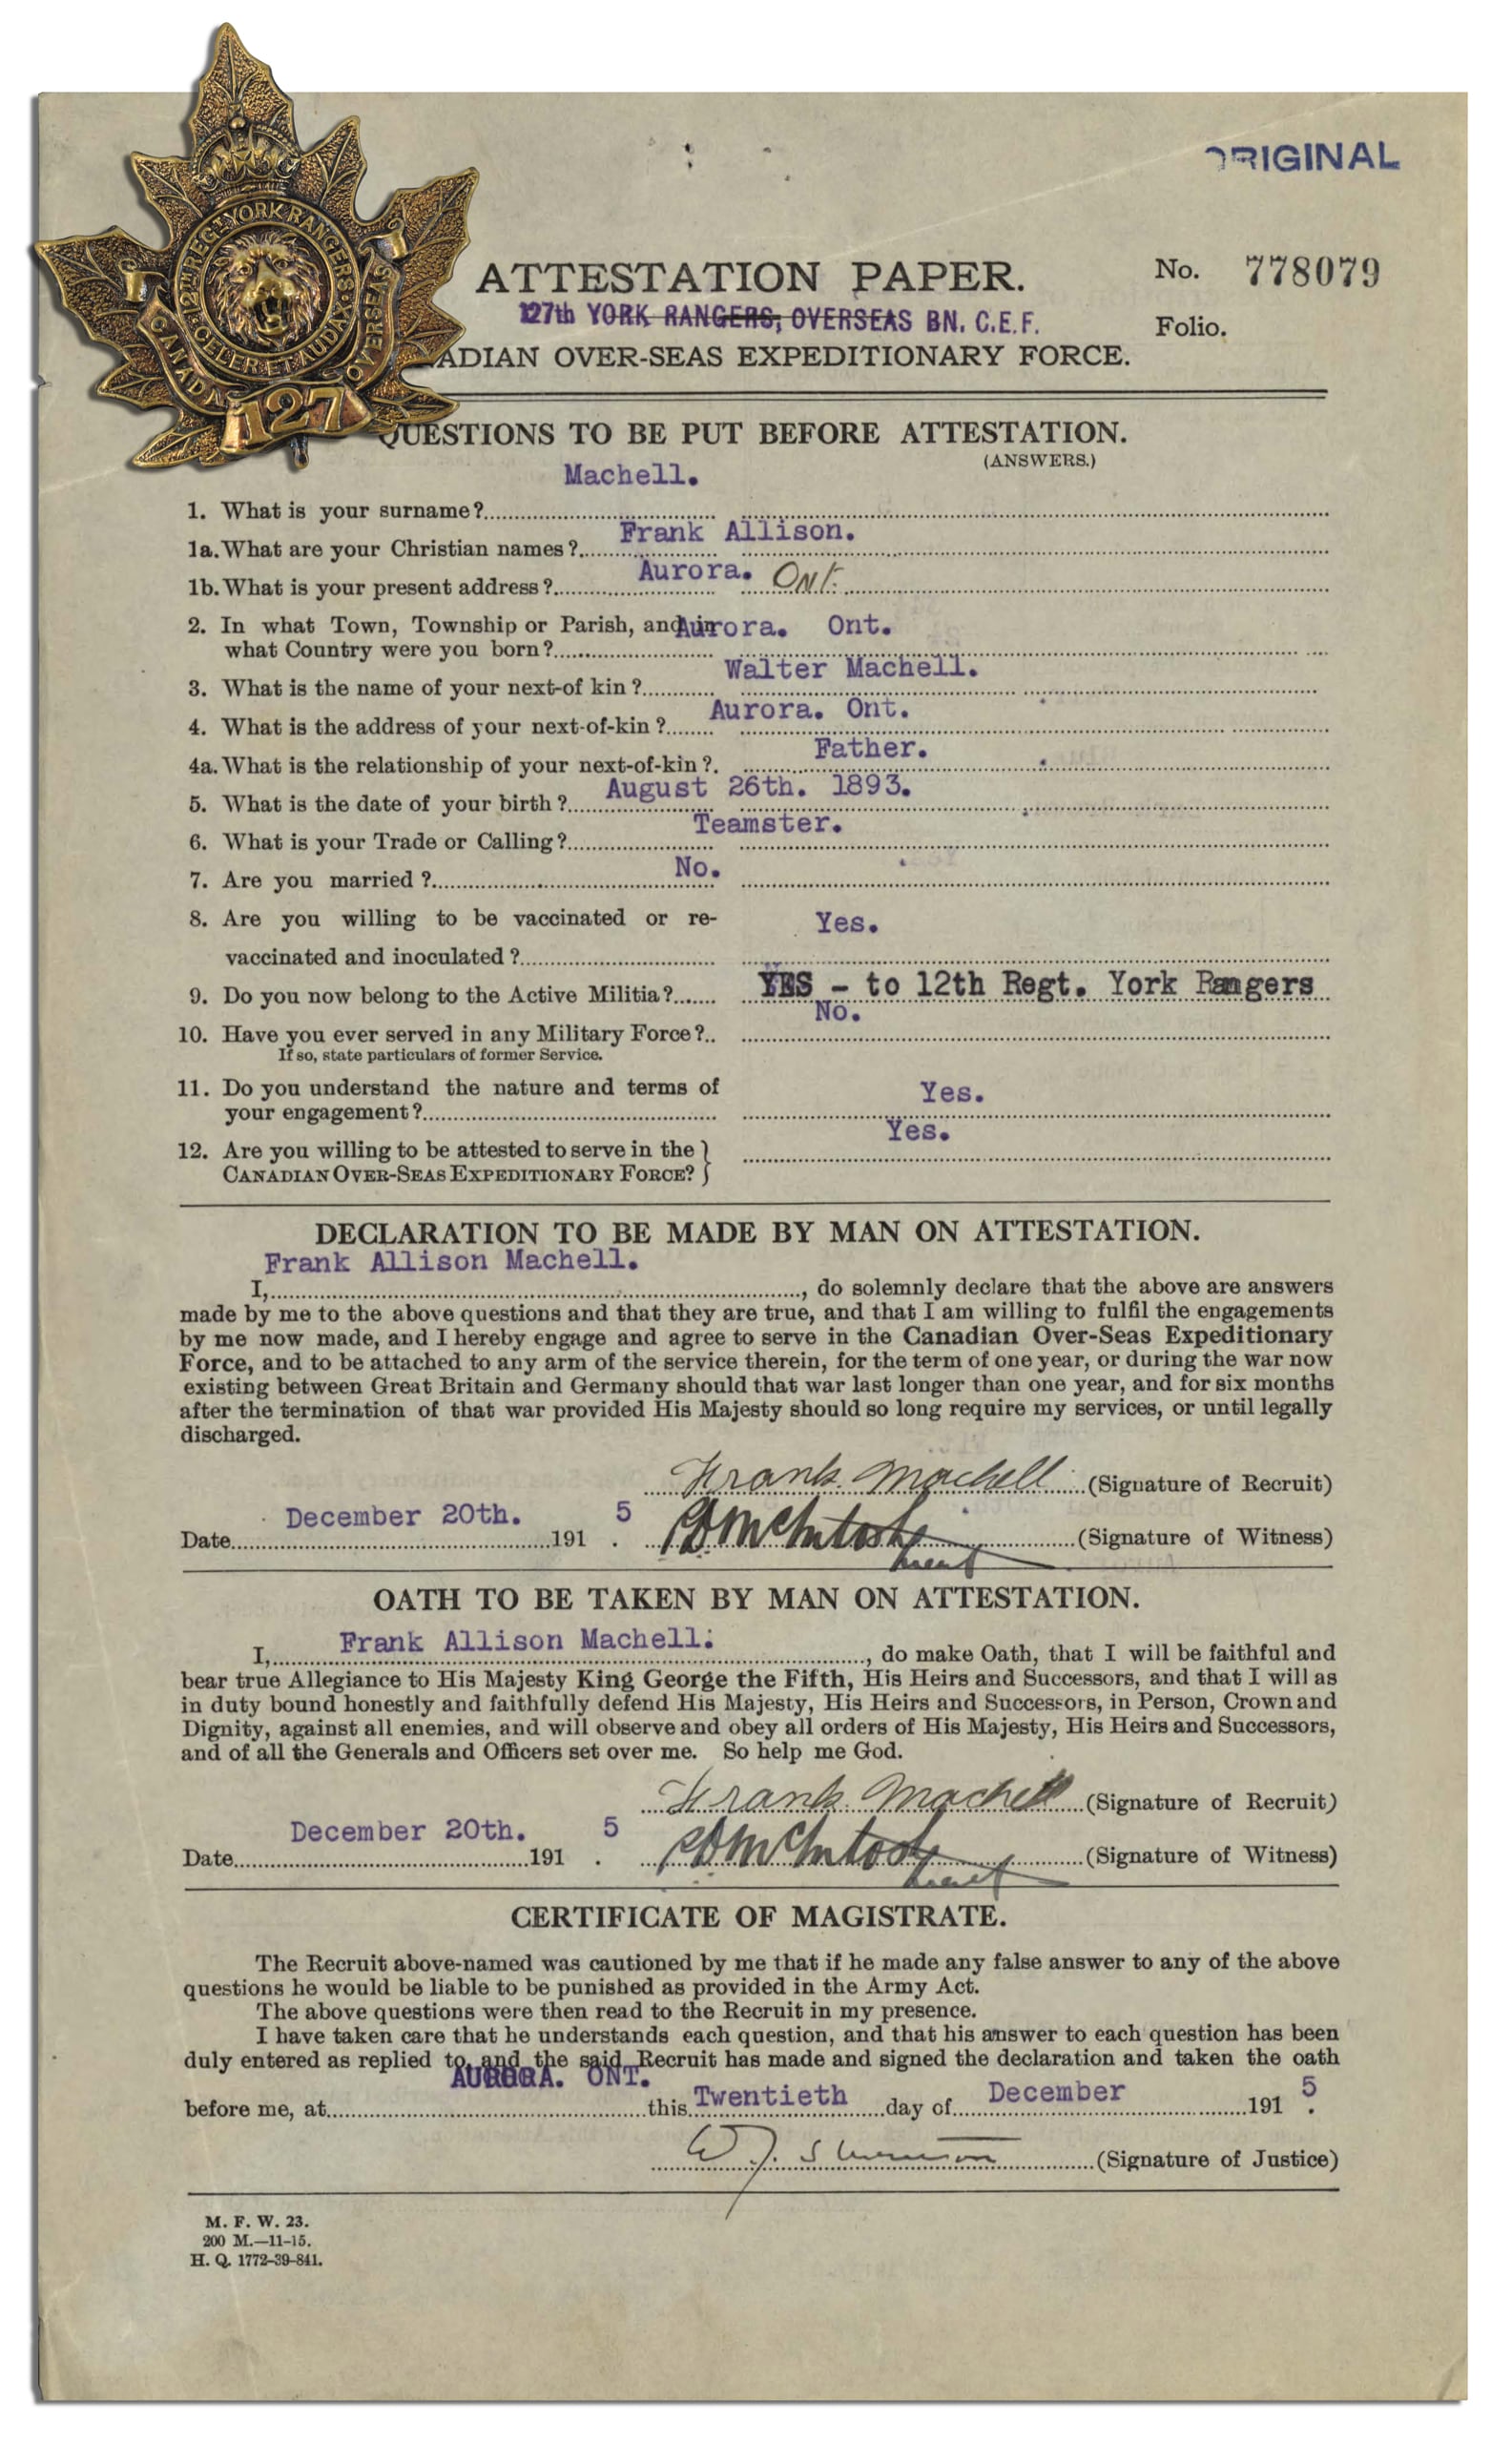 ORIGINAL
12TH REGT YORK RANGERS
CELER ET AUDAX
CANADA OVERSEAS
127
ATTESTATION PAPER.
No. 778079
127th YORK RANGERS, OVERSEAS BN. C.E.F.
Folio.
ADIAN OVER-SEAS EXPEDITIONARY FORCE.
QUESTIONS TO BE PUT BEFORE ATTESTATION.
(ANSWERS.)
1. What is your surname? Machell.
1a. What are your Christian names? Frank Allison.
1b. What is your present address? Aurora. Ont.
2. In what Town, Township or Parish, and in Aurora. Ont.
what Country were you born?
3. What is the name of your next-of kin? Walter Machell.
4. What is the address of your next-of-kin? Aurora. Ont.
4a. What is the relationship of your next-of-kin? Father.
5. What is the date of your birth? August 26th. 1893.
6. What is your Trade or Calling? Teamster.
7. Are you married? No.
8. Are you willing to be vaccinated or re- Yes.
vaccinated and inoculated?
9. Do you now belong to the Active Militia? YES - to 12th Regt. York Rangers
10. Have you ever served in any Military Force? No.
If so, state particulars of former Service.
11. Do you understand the nature and terms of Yes.
your engagement?
12. Are you willing to be attested to serve in the Yes.
CANADIAN OVER-SEAS EXPEDITIONARY FORCE?
DECLARATION TO BE MADE BY MAN ON ATTESTATION.
Frank Allison Machell.
I, , do solemnly declare that the above are answers
made by me to the above questions and that they are true, and that I am willing to fulfil the engagements
by me now made, and I hereby engage and agree to serve in the Canadian Over-Seas Expeditionary
Force, and to be attached to any arm of the service therein, for the term of one year, or during the war now
existing between Great Britain and Germany should that war last longer than one year, and for six months
after the termination of that war provided His Majesty should so long require my services, or until legally
discharged.
Frank Machell (Signature of Recruit)
Date December 20th. 191 5. McIntosh (Signature of Witness)
Lieut
OATH TO BE TAKEN BY MAN ON ATTESTATION.
I, Frank Allison Machell. , do make Oath, that I will be faithful and
bear true Allegiance to His Majesty King George the Fifth, His Heirs and Successors, and that I will as
in duty bound honestly and faithfully defend His Majesty, His Heirs and Successors, in Person, Crown and
Dignity, against all enemies, and will observe and obey all orders of His Majesty, His Heirs and Successors,
and of all the Generals and Officers set over me. So help me God.
Frank Machell (Signature of Recruit)
Date December 20th. 191 5. McIntosh (Signature of Witness)
Lieut
CERTIFICATE OF MAGISTRATE.
The Recruit above-named was cautioned by me that if he made any false answer to any of the above
questions he would be liable to be punished as provided in the Army Act.
The above questions were then read to the Recruit in my presence.
I have taken care that he understands each question, and that his answer to each question has been
duly entered as replied to, and the said Recruit has made and signed the declaration and taken the oath
before me, at AURORA. ONT. this Twentieth day of December 191 5.
W. J. (Signature of Justice)
M. F. W. 23.
200 M.—11-15.
H. Q. 1772-39-841.